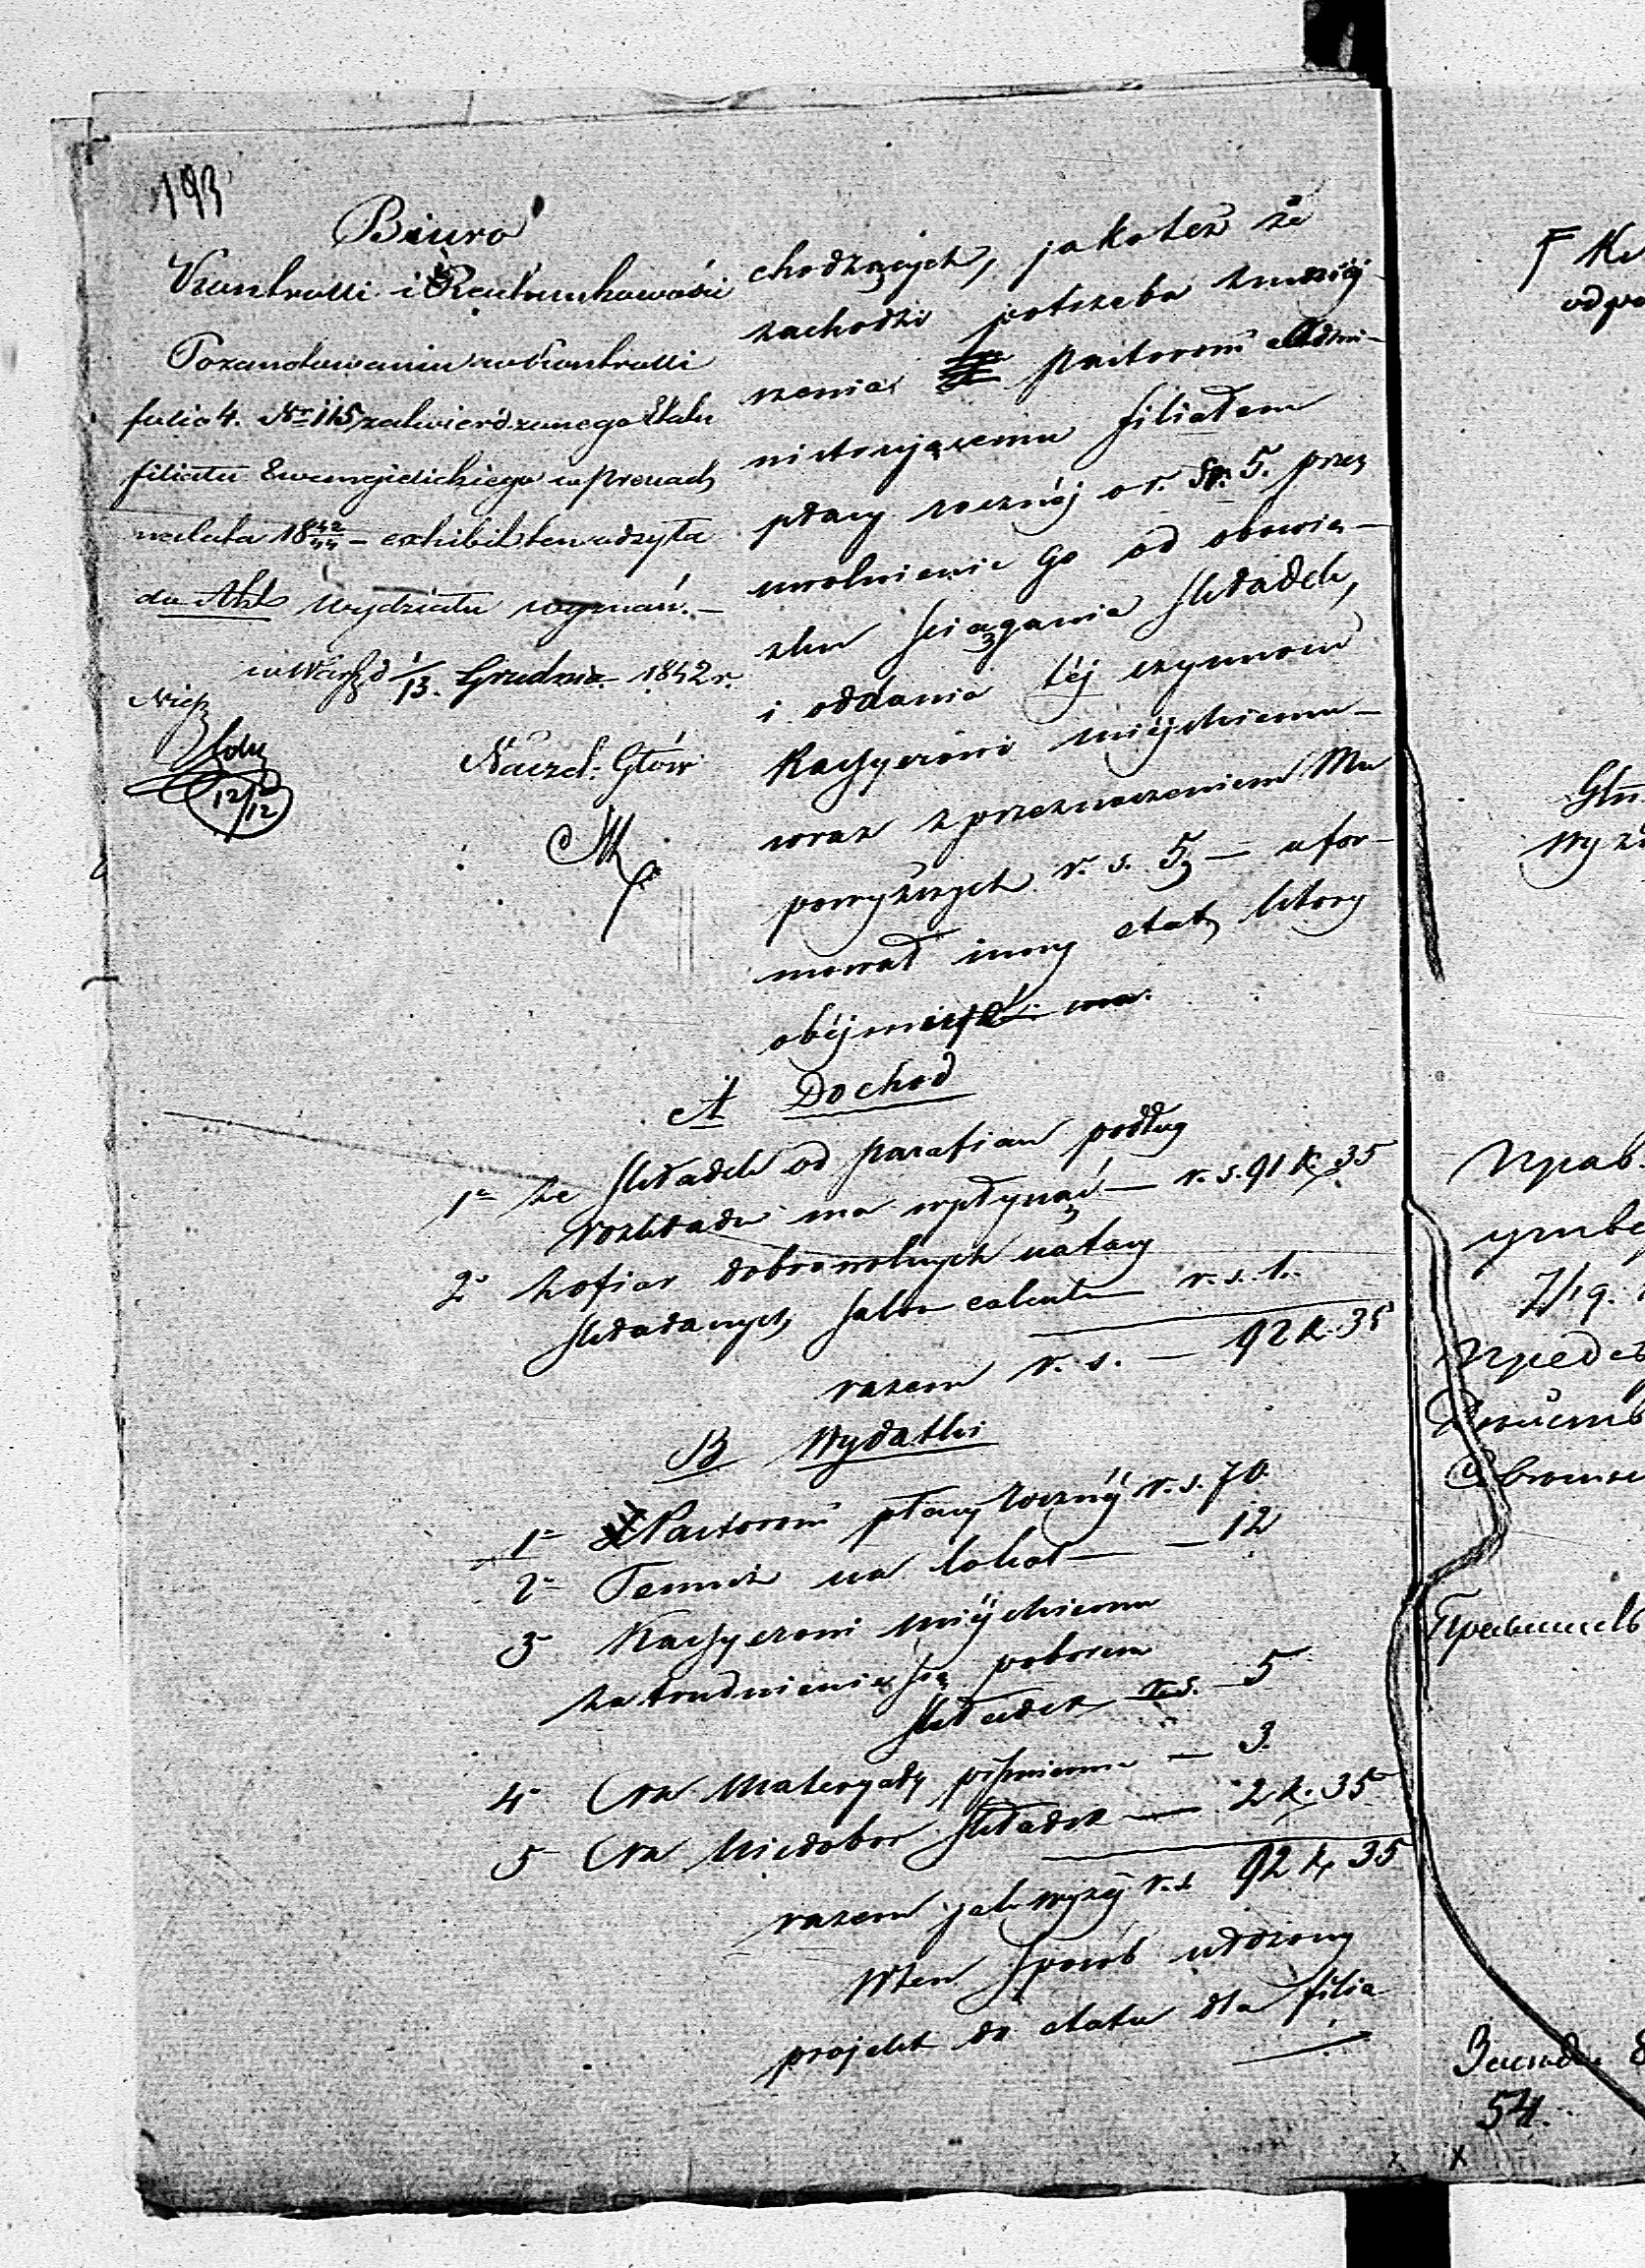 193
Biuro
Kontrolli i Rachunkowości
Pozanotowaniu w Kontrolli
folio 4. No 115 zatwierdzonego Etatu
filiału Ewangielickiego w Prenach
na lata 18 42/44 – exhibit ten odsyła
do Akt Wydziału wyznań. –
w Warsz d 1/13. Grudnia 1842 r.
Naczel: Głów
12/12
chodzących, jakoteż że
zachodzi potrzeba zmniéj-
szenia Pastorowi Admi-
nistrującemu filiałem
płacy rocznéj o r. sr. 5. przez
uwolnienie go od obowią-
zku ściągania składek,
i oddanie téj czynności
Kassyerowi miéjskiemu –
wraz z przeznaczeniem Mu
powyższych r. s. 5, – ufor-
mował inny etat, który
obéjmować ma.
A Dochod
1o Ze składek od parafian podług
rozkładu ma wpłynąć – r. s. 91 k. 35
2o Z ofiar dobrowolnych na tacę
składanych, salvo calculo r. s. 1.
razem r. s. – 92 k. 35
B Wydatki
1o Pastorowi płacy rocznéj r. s. 70.
2o Temuż na lokal – – 12
3o Kassyerowi miéjskiemu
za trudnienie się poborem
składek r. s. – 5
4o Na Materyały piśmienne – 3.
5o Na Niedobor składek – 2 k. 35
razem jak wyżéj r. s. 92 k. 35
W ten sposób
projekt do etatu dla filia
54.